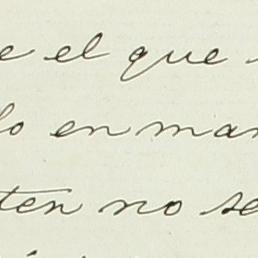 e el que
lo en man
ten no se